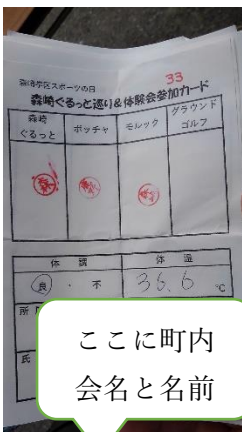 33
森崎学区スポーツの日
森崎ぐるっと巡り&体験会参加カード
森崎 ぐるっと
ボッチャ
モルック
グラウンド ゴルフ
体調
体温
良・不
36.6 ℃
所
氏
ここに町内
会名と名前